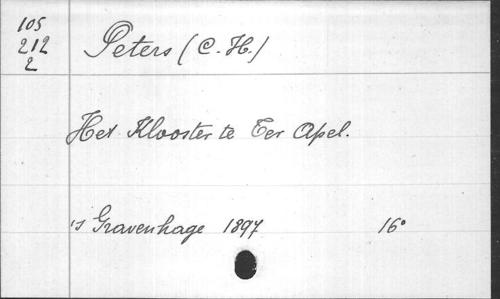 105
212
2
Peters (C. H.)
Het Klooster te Ter Apel.
's Gravenhage 1897 16°